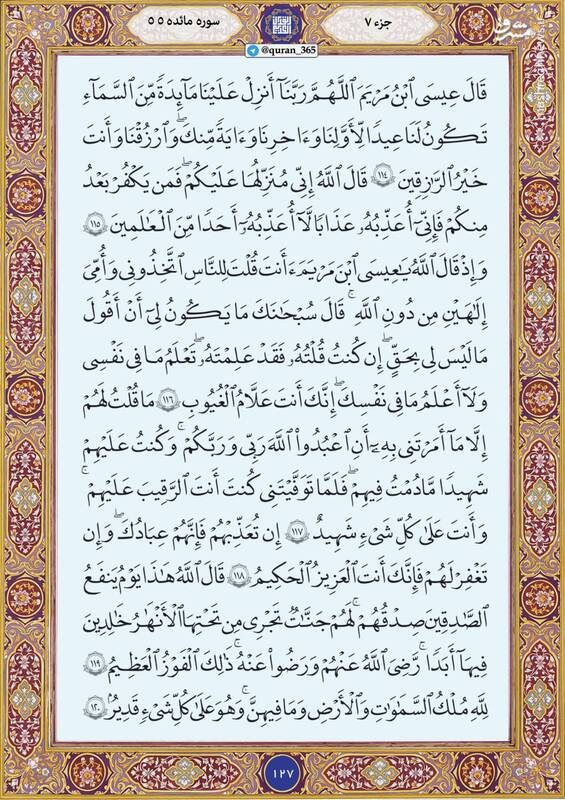 جزء ۷
سوره مائده ۵ ۵
@quran_365
مشرق
قَالَ عِيسَى ٱبْنُ مَرْيَمَ ٱللَّهُمَّ رَبَّنَآ أَنزِلْ عَلَيْنَا مَآئِدَةً مِّنَ ٱلسَّمَآءِ
تَكُونُ لَنَا عِيدًا لِّأَوَّلِنَا وَءَاخِرِنَا وَءَايَةً مِّنكَ ۖ وَٱرْزُقْنَا وَأَنتَ
خَيْرُ ٱلرَّٰزِقِينَ ۝١١٤ قَالَ ٱللَّهُ إِنِّى مُنَزِّلُهَا عَلَيْكُمْ ۖ فَمَن يَكْفُرْ بَعْدُ
مِنكُمْ فَإِنِّىٓ أُعَذِّبُهُۥ عَذَابًا لَّآ أُعَذِّبُهُۥٓ أَحَدًا مِّنَ ٱلْعَٰلَمِينَ ۝١١٥
وَإِذْ قَالَ ٱللَّهُ يَٰعِيسَى ٱبْنَ مَرْيَمَ ءَأَنتَ قُلْتَ لِلنَّاسِ ٱتَّخِذُونِى وَأُمِّىَ
إِلَٰهَيْنِ مِن دُونِ ٱللَّهِ ۖ قَالَ سُبْحَٰنَكَ مَا يَكُونُ لِىٓ أَنْ أَقُولَ
مَا لَيْسَ لِى بِحَقٍّ ۚ إِن كُنتُ قُلْتُهُۥ فَقَدْ عَلِمْتَهُۥ ۚ تَعْلَمُ مَا فِى نَفْسِى
وَلَآ أَعْلَمُ مَا فِى نَفْسِكَ ۚ إِنَّكَ أَنتَ عَلَّٰمُ ٱلْغُيُوبِ ۝١١٦ مَا قُلْتُ لَهُمْ
إِلَّا مَآ أَمَرْتَنِى بِهِۦٓ أَنِ ٱعْبُدُوا۟ ٱللَّهَ رَبِّى وَرَبَّكُمْ ۚ وَكُنتُ عَلَيْهِمْ
شَهِيدًا مَّا دُمْتُ فِيهِمْ ۖ فَلَمَّا تَوَفَّيْتَنِى كُنتَ أَنتَ ٱلرَّقِيبَ عَلَيْهِمْ ۚ
وَأَنتَ عَلَىٰ كُلِّ شَىْءٍ شَهِيدٌ ۝١١٧ إِن تُعَذِّبْهُمْ فَإِنَّهُمْ عِبَادُكَ ۖ وَإِن
تَغْفِرْ لَهُمْ فَإِنَّكَ أَنتَ ٱلْعَزِيزُ ٱلْحَكِيمُ ۝١١٨ قَالَ ٱللَّهُ هَٰذَا يَوْمُ يَنفَعُ
ٱلصَّٰدِقِينَ صِدْقُهُمْ ۚ لَهُمْ جَنَّٰتٌ تَجْرِى مِن تَحْتِهَا ٱلْأَنْهَٰرُ خَٰلِدِينَ
فِيهَآ أَبَدًا ۚ رَّضِىَ ٱللَّهُ عَنْهُمْ وَرَضُوا۟ عَنْهُ ۚ ذَٰلِكَ ٱلْفَوْزُ ٱلْعَظِيمُ ۝١١٩
لِلَّهِ مُلْكُ ٱلسَّمَٰوَٰتِ وَٱلْأَرْضِ وَمَا فِيهِنَّ ۚ وَهُوَ عَلَىٰ كُلِّ شَىْءٍ قَدِيرٌۢ ۝١٢٠
۱۲۷